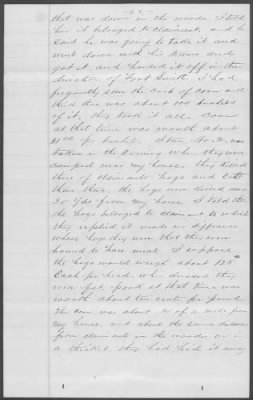 that was down in the woods I told
him it belonged to claimant, and he
said he was going to take it and
went down with his teams and
got it and hauled it off in the
direction of Fort Smith. I had
frequently seen the crib of corn and
think there was about 100 bushels
of it, they took it all. Corn
at that time was worth about
per bushel. Item No.
taken in the evening when they were
camped near my house, they killed
three of claimants hogs and
them there, the hogs were killed some
30 yds from my house. I told them
the hogs belonged to claimant to which
they replied it made no difference
whose hogs they were that they were
bound to have meat. I suppose
the hogs would weigh about
Each per head when dressed they
were fat, pork at that time was
worth about ten cents per pound
The corn was about of a mile from
My house, and about the same distance
from claimants in the woods or in
a thicket they had hid it away